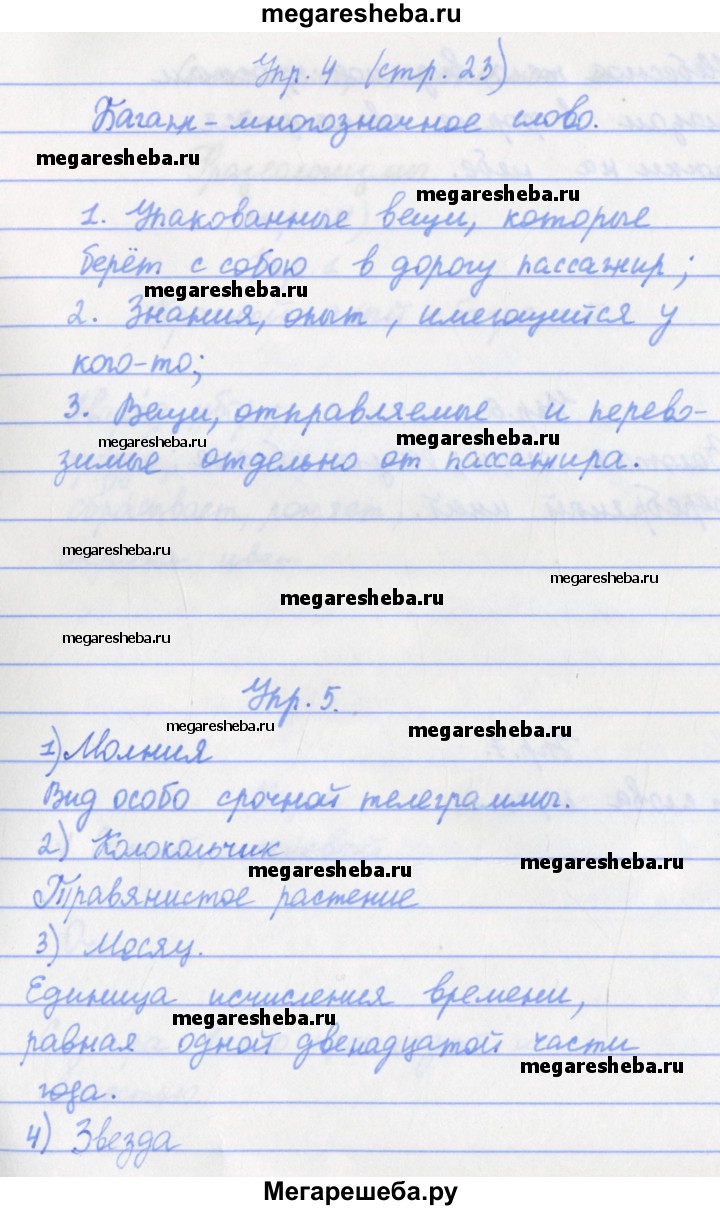 megaresheba.ru
Упр. 4 (стр. 23)
Багаж - многозначное слово.
megaresheba.ru
megaresheba.ru
1. Упакованные вещи, которые
берёт с собою в дорогу пассажир;
megaresheba.ru
2. Знания, опыт, имеющийся у
кого-то;
3. Вещи, отправляемые и перево-
megaresheba.ru
megaresheba.ru
зимые отдельно от пассажира.
megaresheba.ru
megaresheba.ru
megaresheba.ru
megaresheba.ru
Упр. 5.
megaresheba.ru
megaresheba.ru
1) Молния
Вид особо срочной телеграммы.
2) Колокольчик
megaresheba.ru
megaresheba.ru
Травянистое растение
3) Месяц.
Единица исчисления времени,
megaresheba.ru
равная одной двенадцатой части
megaresheba.ru
года.
4) Звезда
Мегарешеба.ру